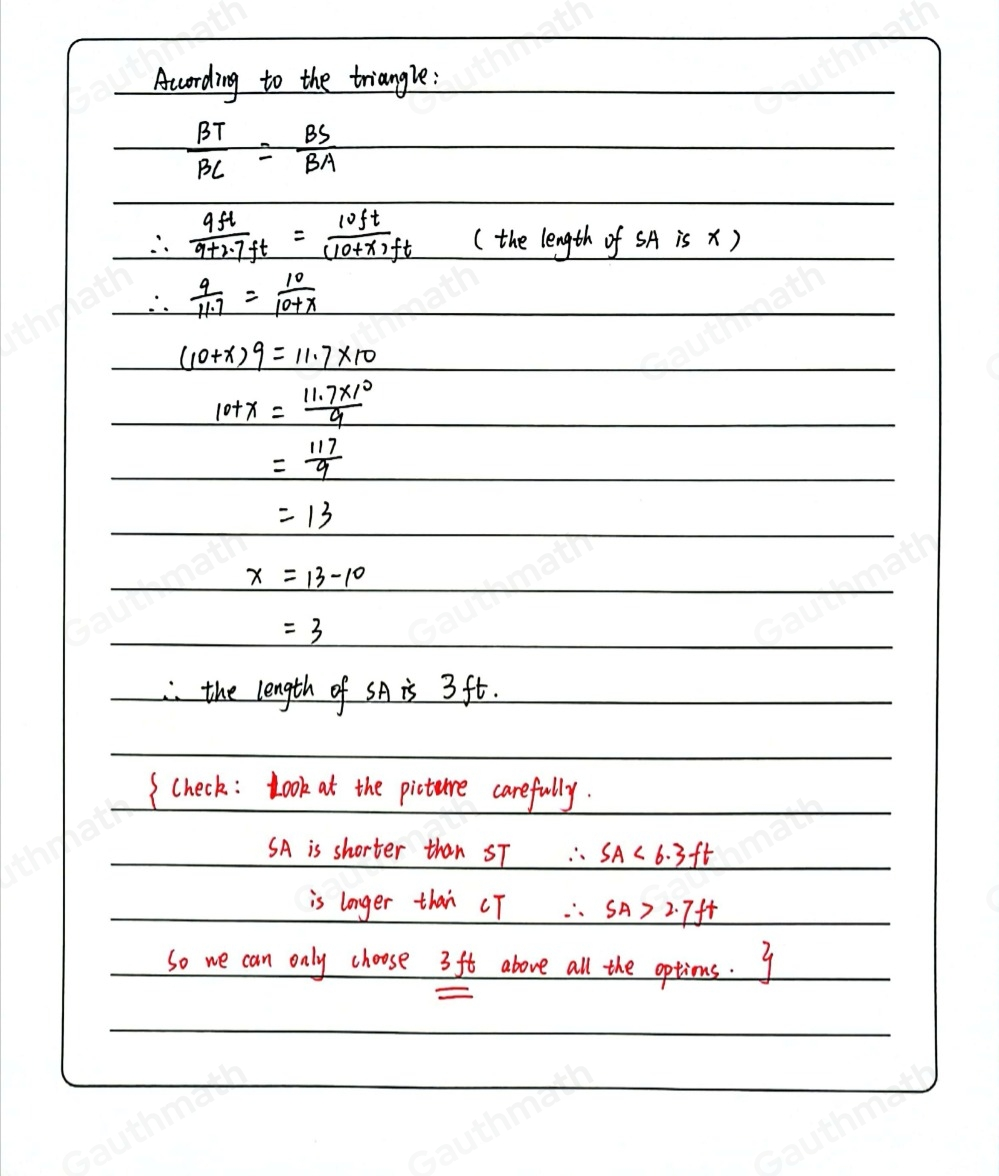 According to the triangle:
BT/BC = BS/BA
∴ 9ft/9+2.7ft = 10ft/(10+x)ft (the length of SA is x)
∴ 9/11.7 = 10/10+x
(10+x)9 = 11.7×10
10+x = 11.7×10/9
= 117/9
= 13
x = 13-10
= 3
∴ the length of SA is 3ft.
{ Check: Look at the picture carefully.
SA is shorter than ST ∴ SA < 6.3ft
is longer than CT ∴ SA > 2.7ft
So we can only choose 3ft above all the options. }
Gauthmath